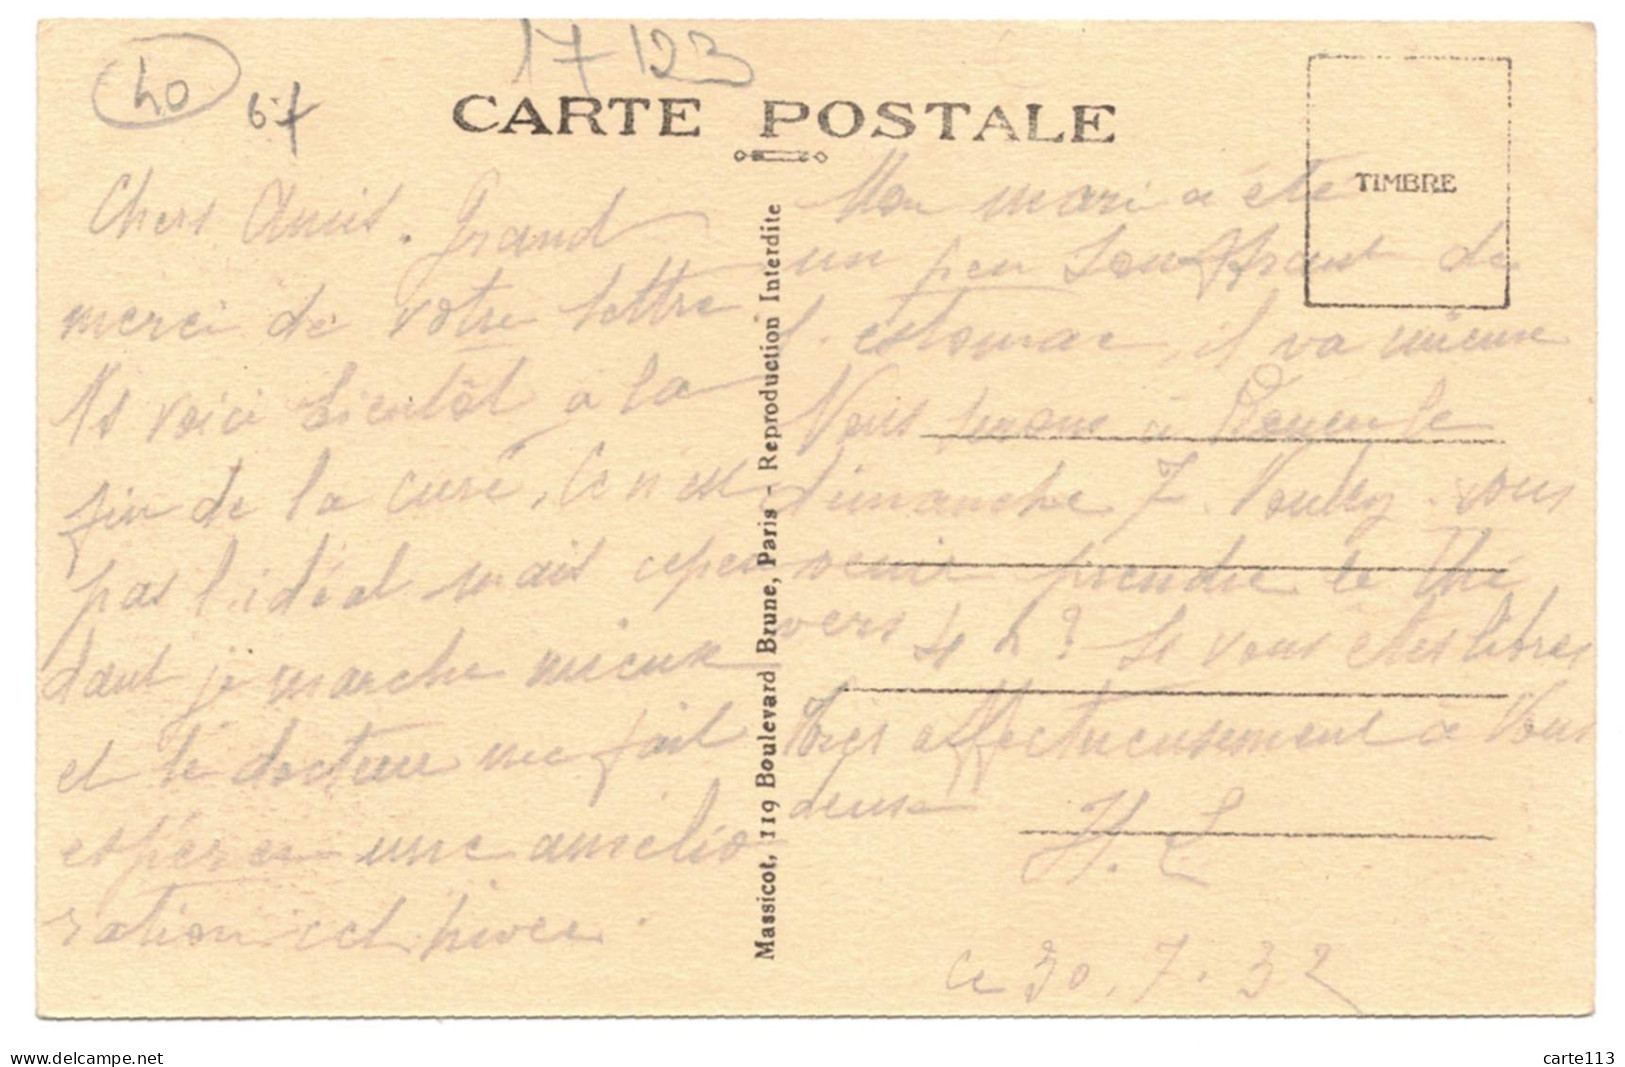 40
67
17 123
CARTE POSTALE
TIMBRE
Chers Amis. Grand
merci de votre lettre
Ns voici bientôt à la
fin de la cure. Ce n'est
pas l'idéal mais cepen
dant je marche mieux
et le docteur me fait
espérer une amélio
ration cet hiver.
Massicot, 119 Boulevard Brune, Paris - Reproduction Interdite
Mon mari a été
un peu souffrant de
l'estomac, il va mieux
Nous serons à
dimanche 7. Voulez-vous
venir prendre le thé
vers 4 h? Si vous êtes libres
Bien affectueusement à vous
deux
H. L
ce 30.7.32
www.delcampe.net
carte113